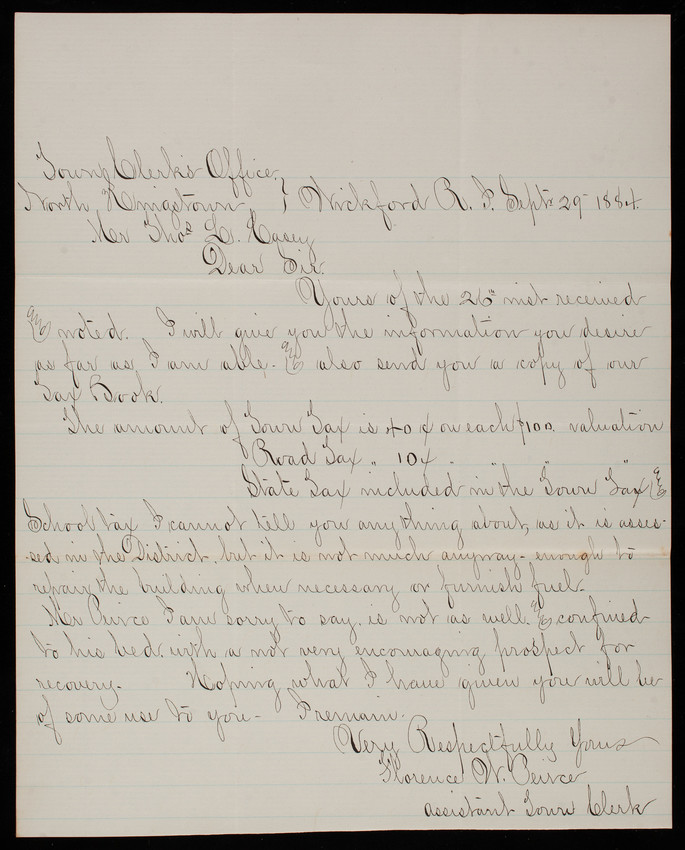 Town Clerk's Office,
North Kingstown, } Wickford R. I. Sept. 29 1884.
Mr Thos L. Casey
Dear Sir.
Yours of the 26" inst received
& noted. I will give you the information you desire
as far as I am able. & also send you a copy of our
Tax Book.
The amount of Town Tax is 40 ¢ on each $100. valuation
Road Tax " 10 ¢ " " " "
State Tax included in the Town Tax &
School tax I cannot tell you anything about, as it is asses-
-sed in the District, but it is not much anyway - enough to
repair the building when necessary or furnish fuel.
Mr Peirce I am sorry to say, is not as well. & confined
to his bed. with a not very encouraging prospect for
recovery. Hoping what I have given you will be
of some use to you - I remain.
Very Respectfully Yours
Florence W. Peirce
Assistant Town Clerk